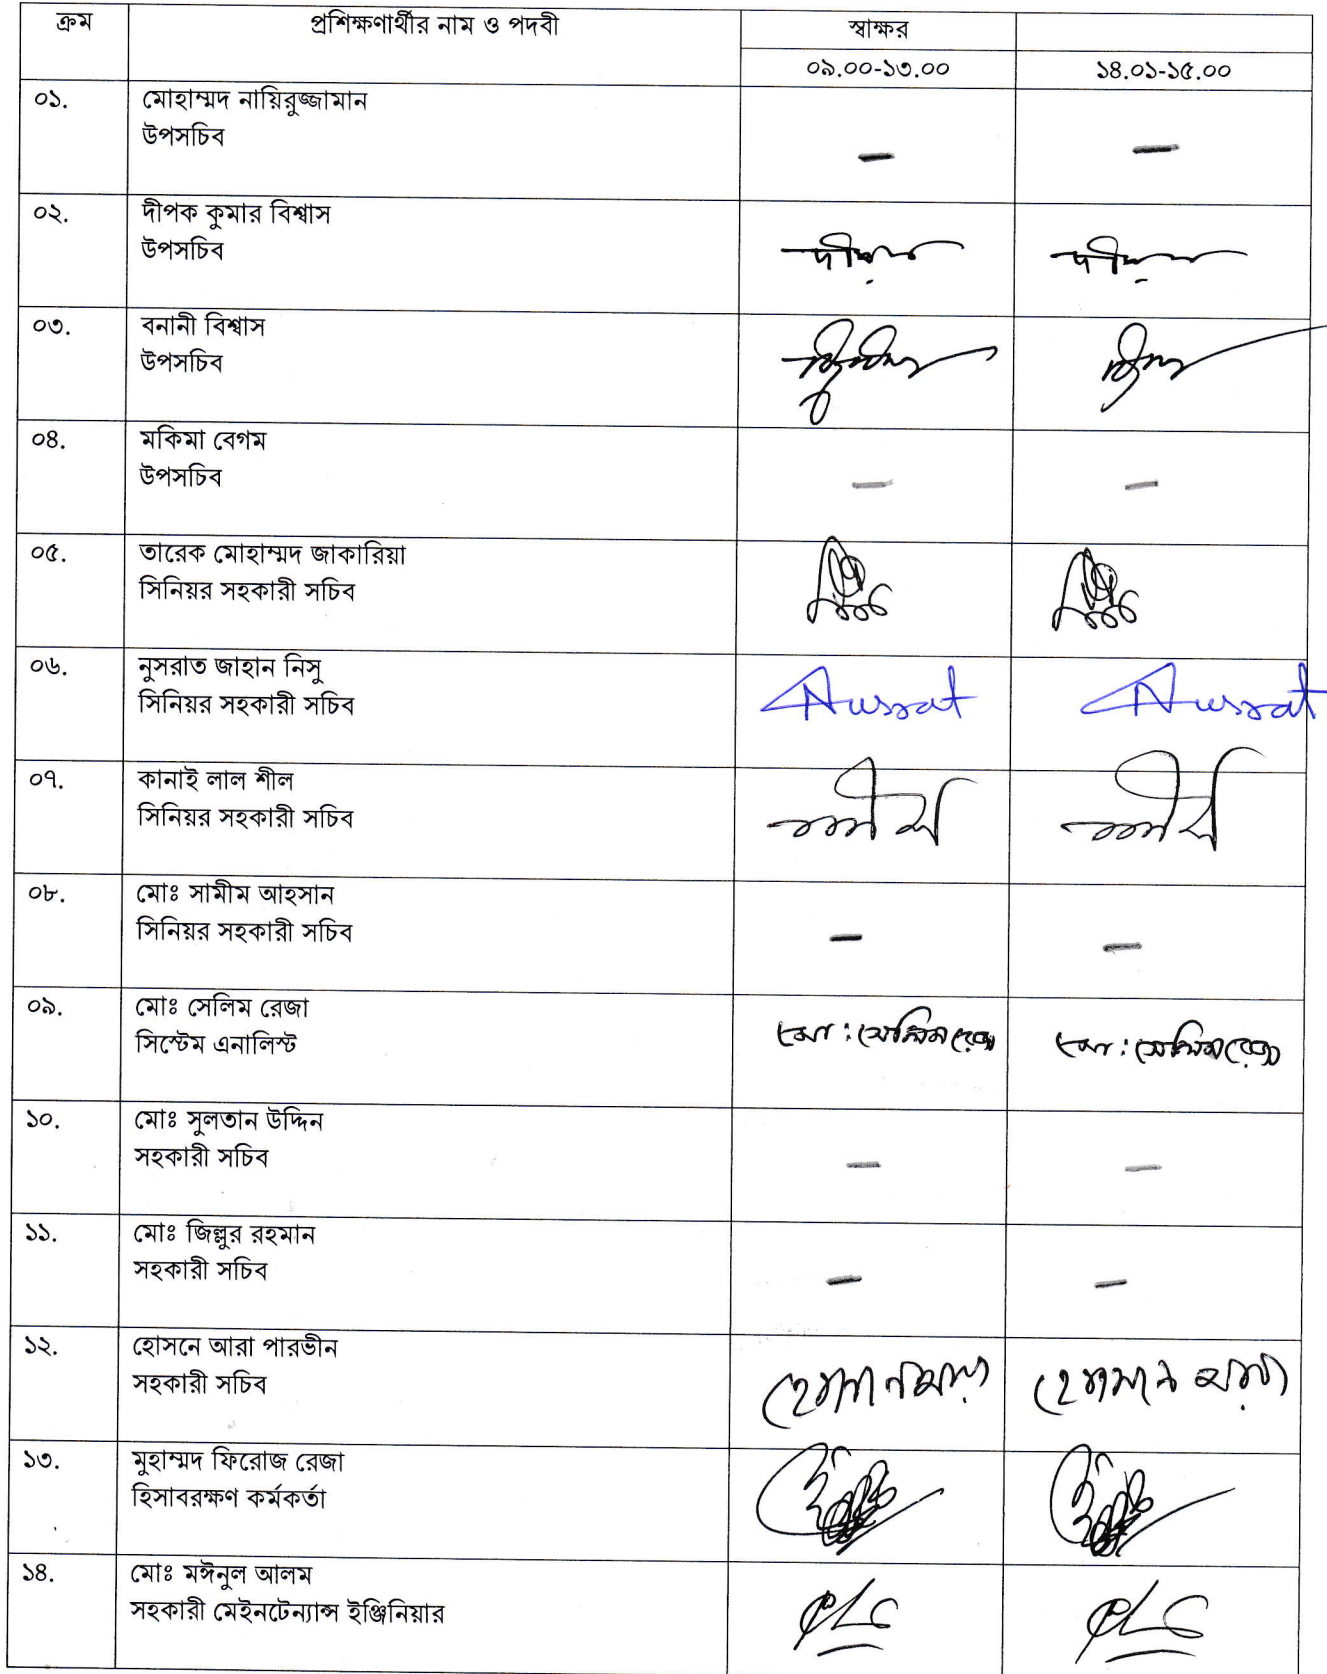 ক্রম প্রশিক্ষণার্থীর নাম ও পদবী স্বাক্ষর
০৯.00-১৩.00 ১৪.০১-১৫.00
০১. মোহাম্মদ নায়িরুজ্জামান
উপসচিব
— —
০২. দীপক কুমার বিশ্বাস
উপসচিব
০৩. বনানী বিশ্বাস
উপসচিব
০৪. মকিমা বেগম
উপসচিব
— —
০৫. তারেক মোহাম্মদ জাকারিয়া
সিনিয়র সহকারী সচিব
০৬. নুসরাত জাহান নিসু
সিনিয়র সহকারী সচিব
Nusrat Nusrat
০৭. কানাই লাল শীল
সিনিয়র সহকারী সচিব
০৮. মোঃ সামীম আহসান
সিনিয়র সহকারী সচিব
— —
০৯. মোঃ সেলিম রেজা
সিস্টেম এনালিস্ট
মো: সেলিম রেজা মো: সেলিম রেজা
১০. মোঃ সুলতান উদ্দিন
সহকারী সচিব
— —
১১. মোঃ জিল্লুর রহমান
সহকারী সচিব
— —
১২. হোসনে আরা পারভীন
সহকারী সচিব
হোসনে আরা হোসনে আরা
১৩. মুহাম্মদ ফিরোজ রেজা
হিসাবরক্ষণ কর্মকর্তা
১৪. মোঃ মঈনুল আলম
সহকারী মেইনটেন্যান্স ইঞ্জিনিয়ার